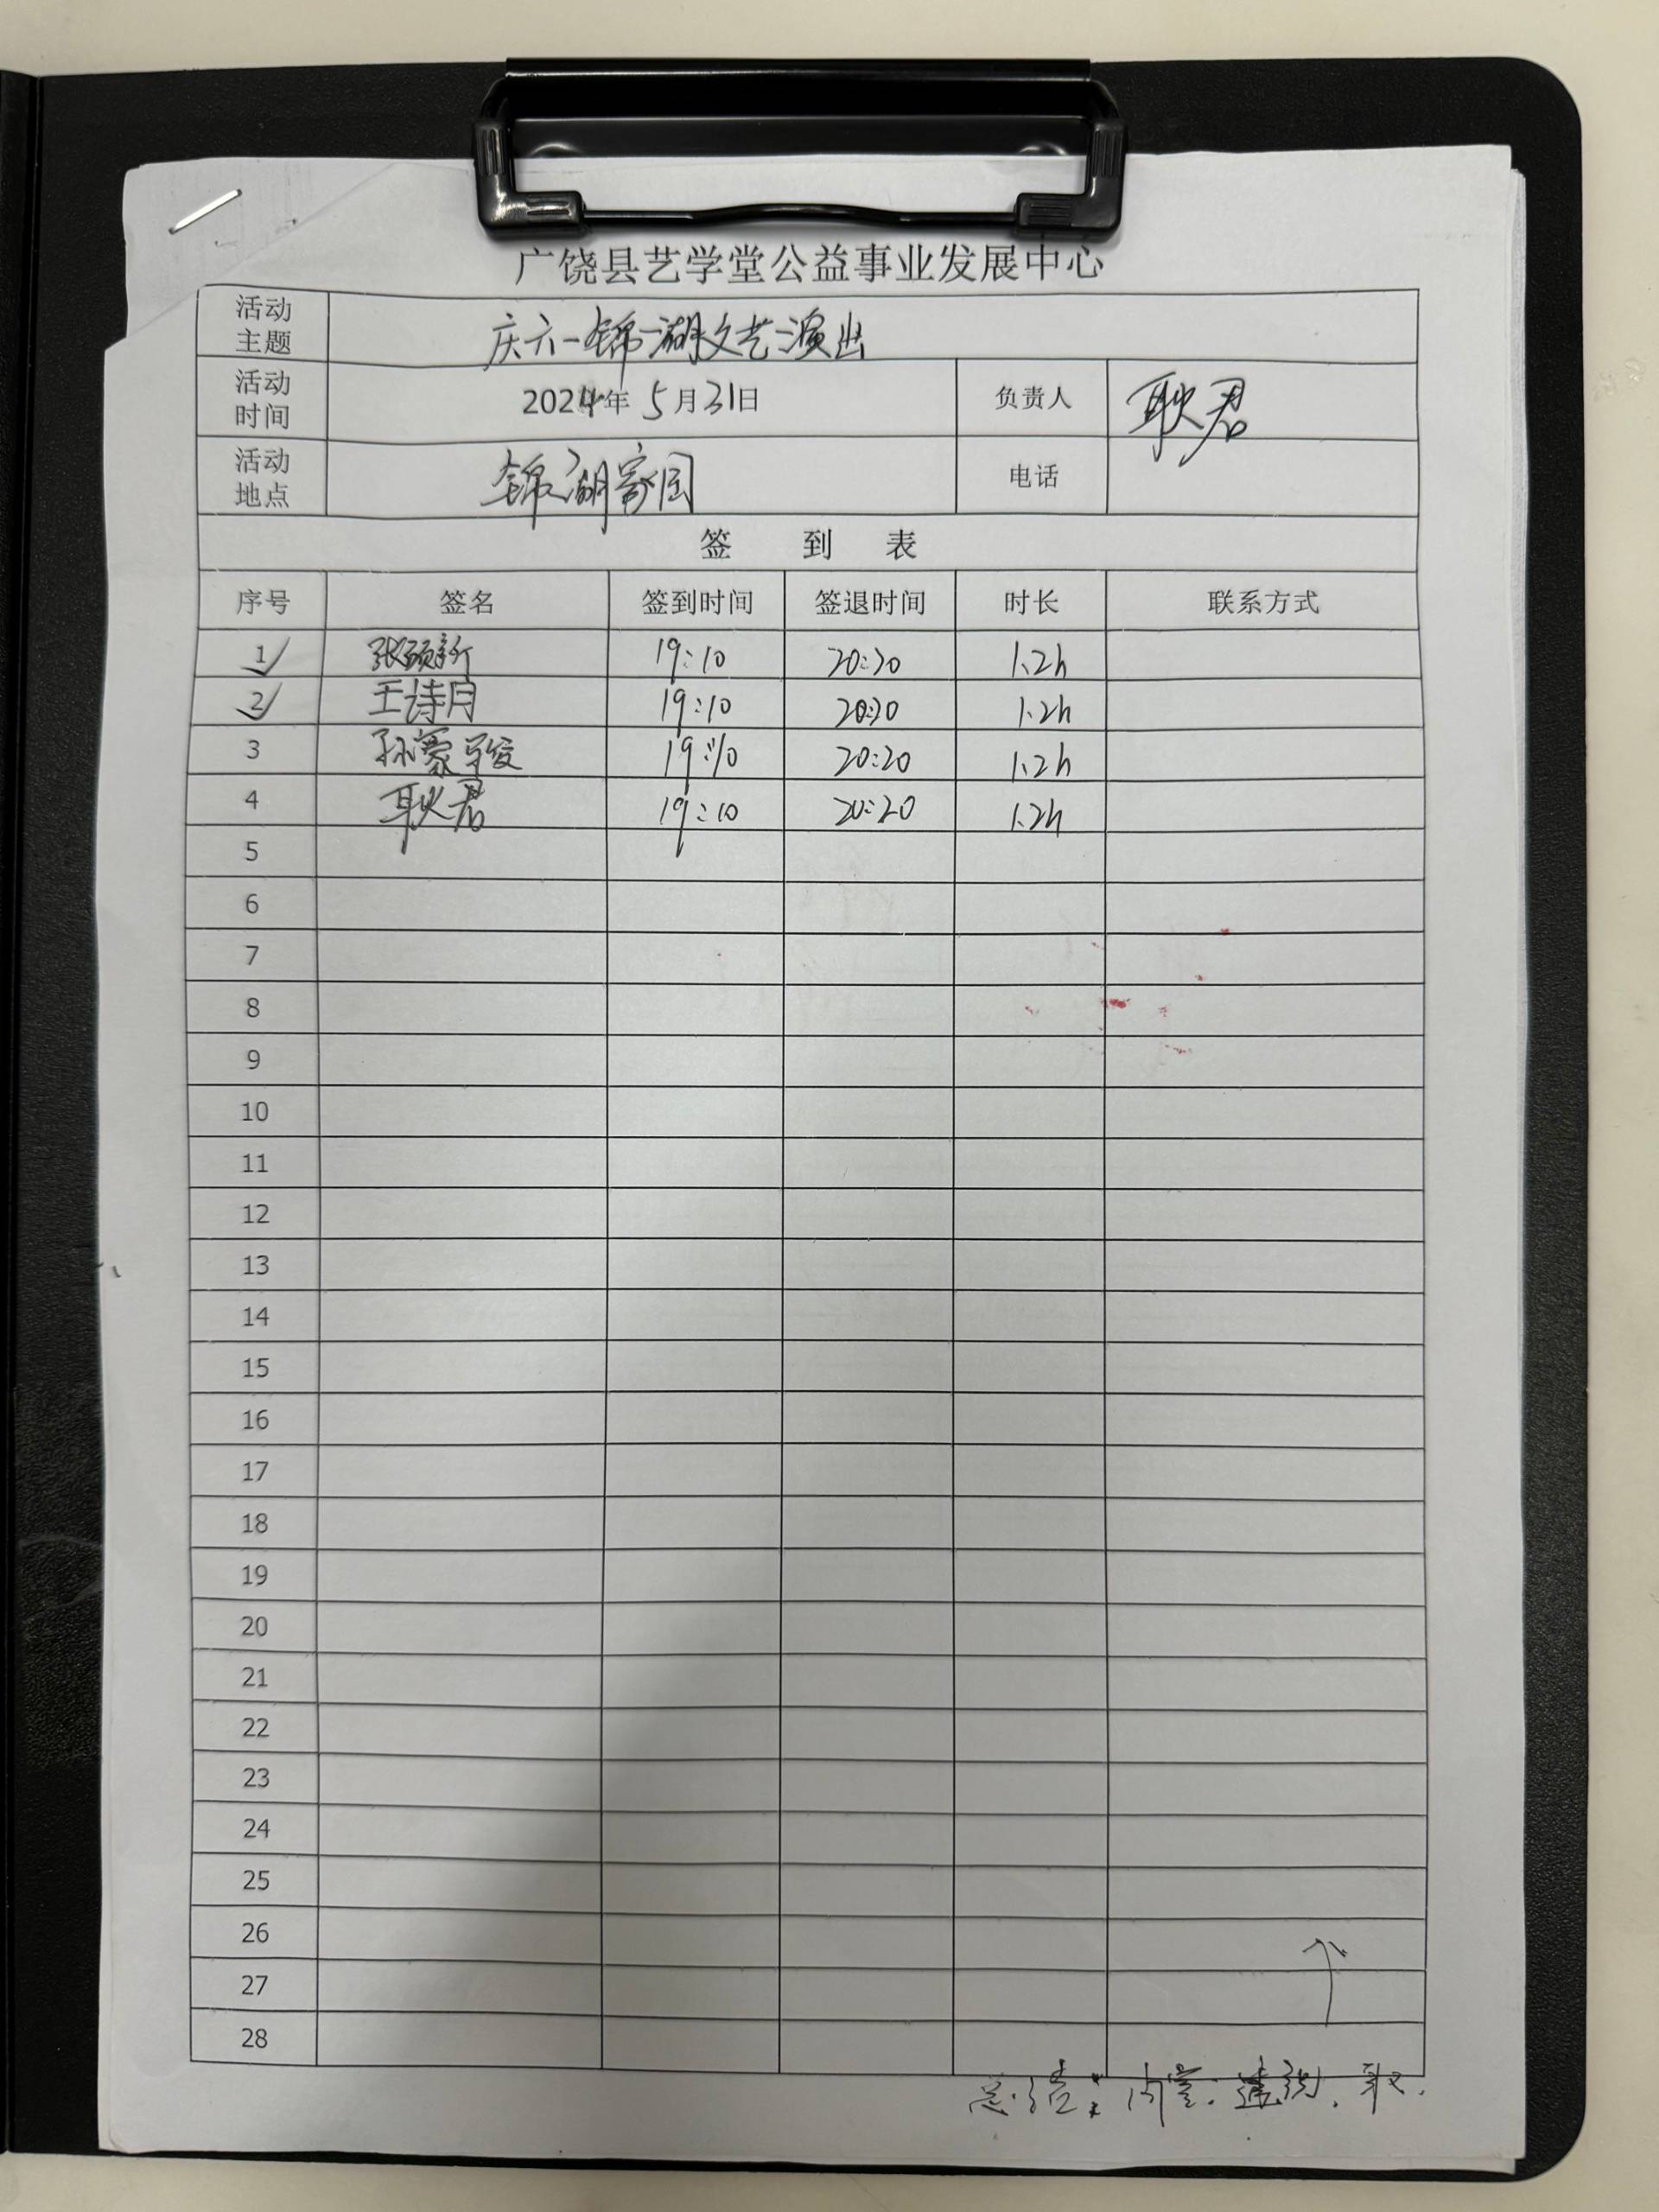 广饶县艺学堂公益事业发展中心
活动主题 庆六一锦湖文艺演出
活动时间 2024年5月31日 负责人 耿君
活动地点 锦湖家园 电话
签到表
序号 签名 签到时间 签退时间 时长 联系方式
1 张硕新 19:10 20:20 1.2h
2 王诗月 19:10 20:20 1.2h
3 孙豪 19:10 20:20 1.2h
4 耿君 19:10 20:20 1.2h
5
6
7
8
9
10
11
12
13
14
15
16
17
18
19
20
21
22
23
24
25
26
27
28
总结:内